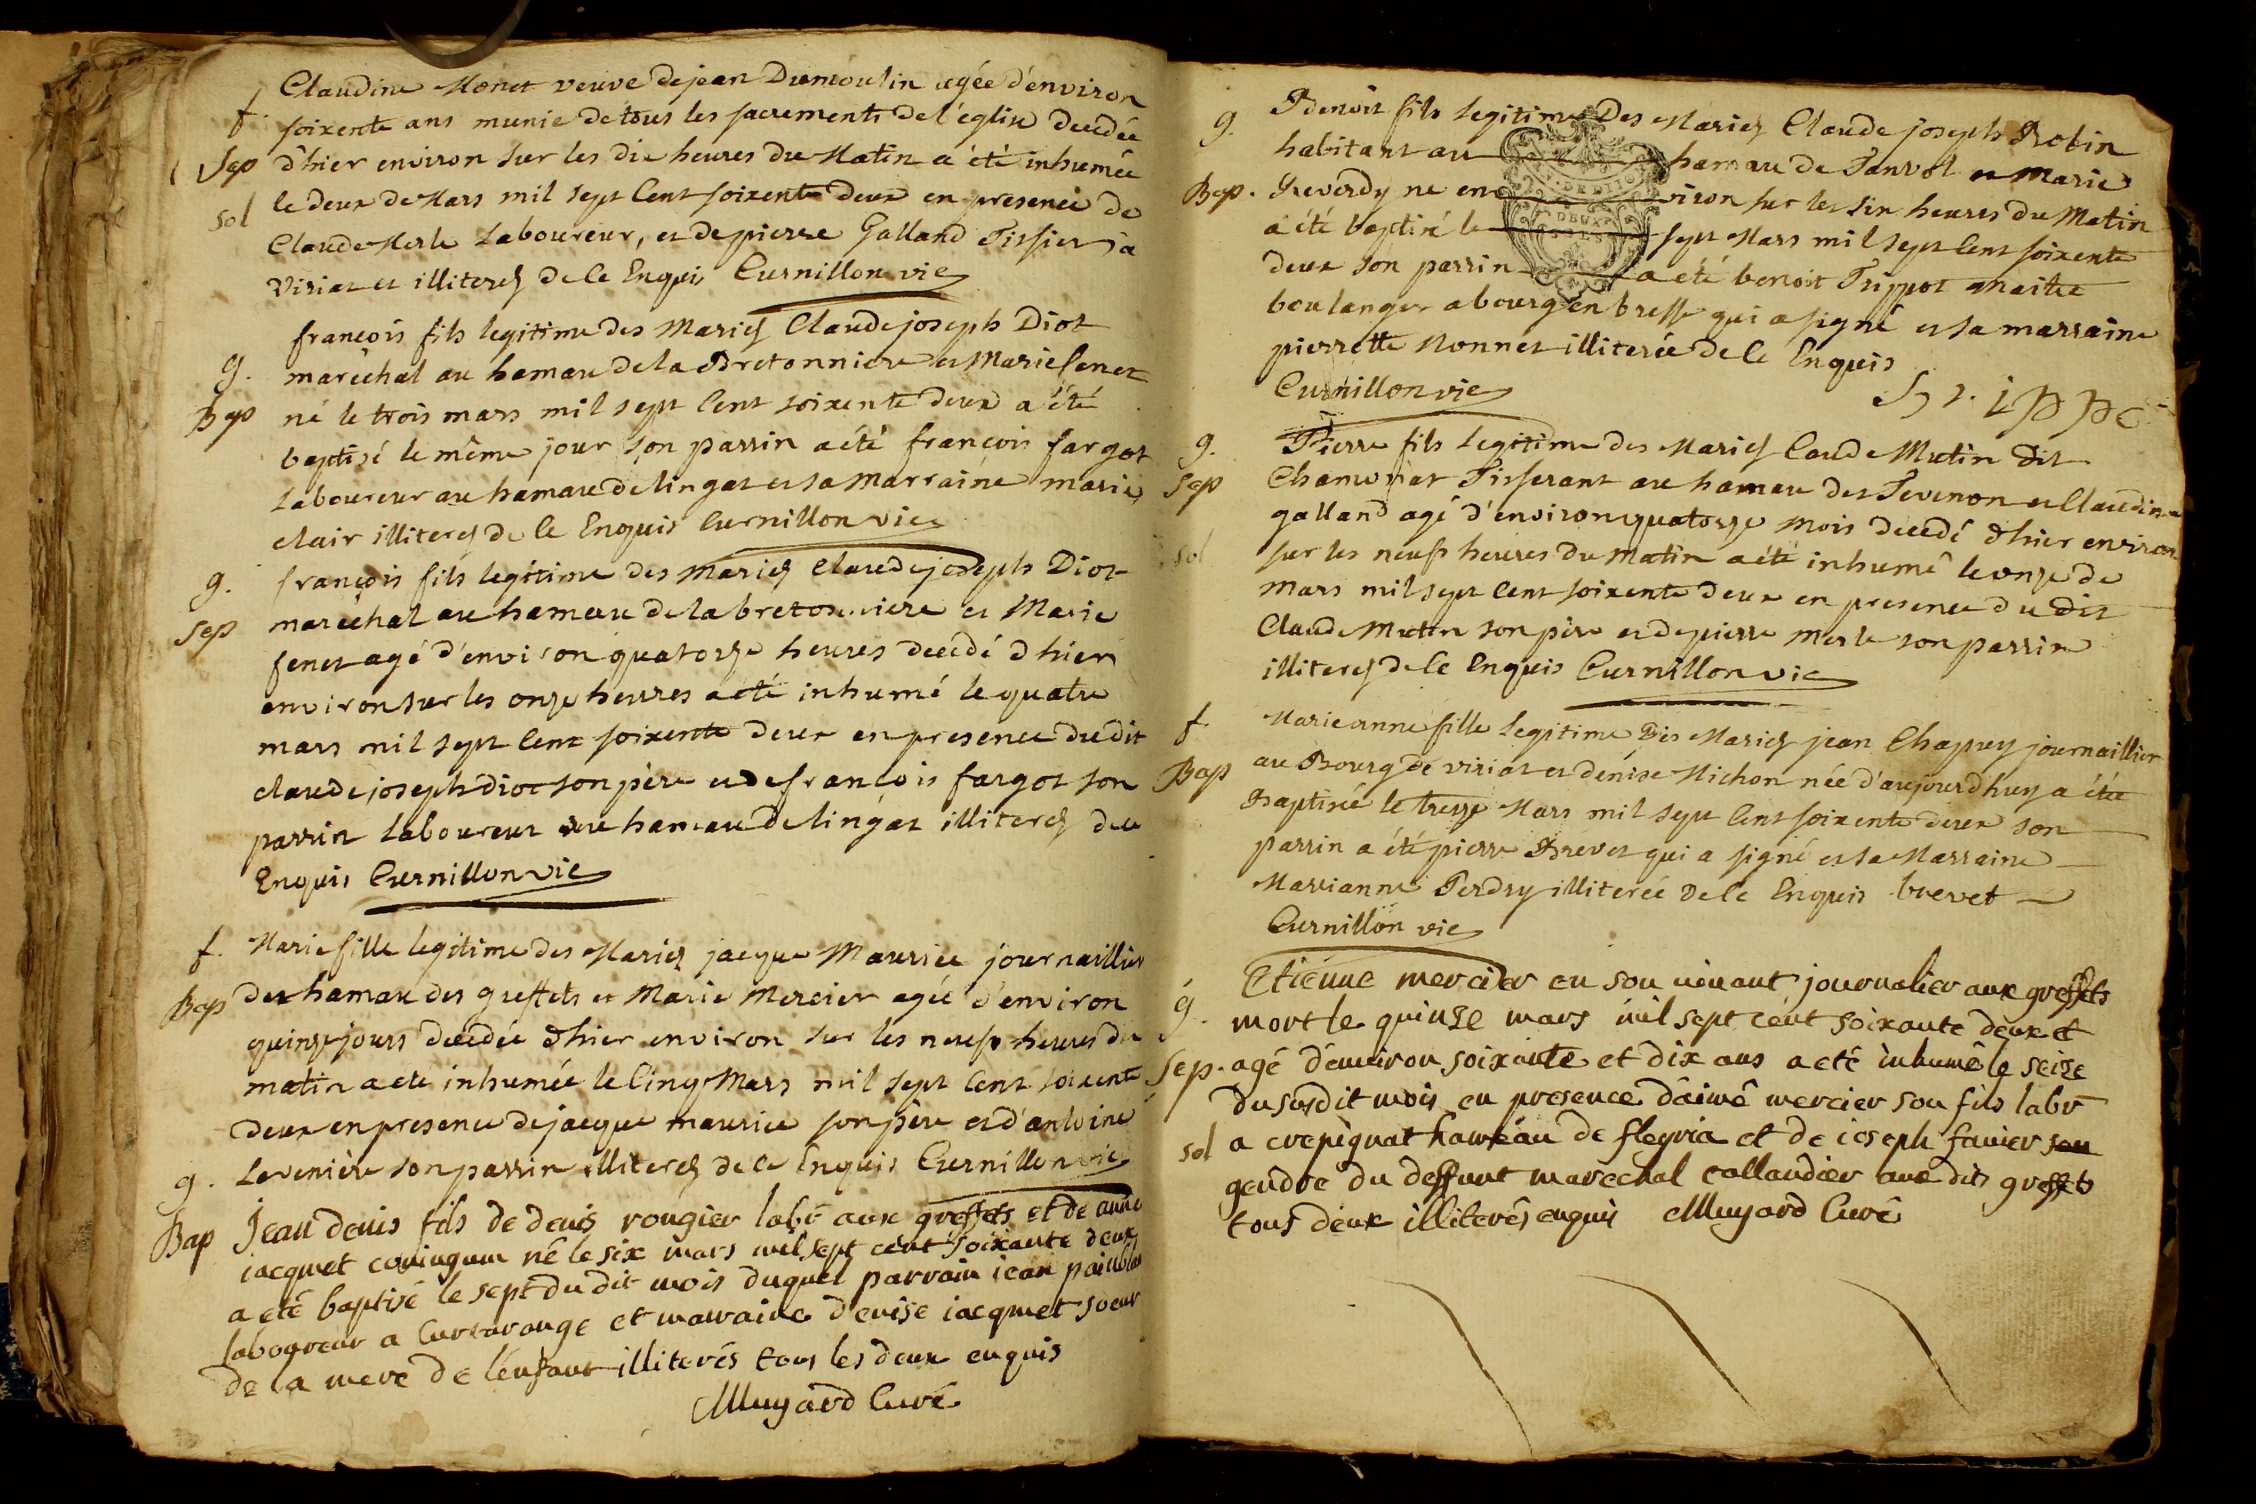 Claudine Monet veuve de jean Dumoulin agée d'environ
f. soixente ans munie de tous les sacrements de l'églize decedée
Sep d'hier environ sur les dix heures du Matin a été inhumée
sol le deux de Mars mil sept Cent soixente deux en presence de
Claude Merle Laboureur, et de pierre Galland Tissier a
Viriat et illiterez de ce Enquis Curnillon vic
françois fils legitime des Mariez Claude joseph Diot
g. maréchal au hameau de la Bretonniere et Marie fenet
Bap né le trois mars mil sept Cent soixente deux a été
baptisé le même jour son parrin a été françois fargot
Laboureur au hameau de lingat et sa marraine marie
clair illiterez de ce Enquis Curnillon vic
g. françois fils legitime des Mariez Claude joseph Diot
sep maréchal au hameau de la bretonniere et Marie
fenet agé d'environ quatorze heures decedé d'hier
environ sur les onze heures a été inhumé le quatre
mars mil sept Cent soixente deux en presence du dit
claude joseph diot son père et de françois fargot son
parrin Laboureur au hameau de lingat illiterez de ce
Enquis Curnillon vic
f. Marie fille legitime des Mariez jacque Maurice journaillier
Bap du hamau des greffets et Marie Mercier agée d'environ
quinze jours decedée d'hier environ sur les neuf heures du
matin a été inhumée le Cinq Mars mil sept Cent soixente
deux en presence de jacque maurice son père et d'antoine
Levenière son parrin illiterez de ce Enquis Curnillon vic
g. Jean denis fils de denis rougier labr aux greffets et de anne
Bap jacquet coniugum né le six mars mil sept cent soixante deux
a eté baptisé le sept du dit mois duquel parrain iean painblan
laboureur a Curtarouge et marraine denise iacquet soeur
de la mere de l'enfant illiterés tous les deux enquis
Muyard Curé
g. Benoit fils legitime Des Mariez Claude joseph Robin
habitant au hameau de Tanvol et Marie
Bap. Reverdy né environ sur les six heures du Matin
a été baptisé le sept Mars mil sept Cent soixente
deux son parrin a été benoit Trippot maitre
boulanger a bourg en bresse qui a signé et sa marraine
pierrette Nonnet illiterée de ce Enquis
Curnillon vic
g. Pierre fils legitime des Mariez Claude Mutin dit
sep Chamoriat Tisserant au hameau des Tevenon et Claudine
galland agé d'environ quatorze Mois decedé d'hier environ
sol sur les neufs heures du Matin a été inhumé le onze de
mars mil sept Cent soixente deux en presence du dit
Claude Mutin son père et de pierre Merle son parrin
illiterez de ce Enquis Curnillon vic
f. Marieanne fille legitime Des Mariez jean Chapuy journaillier
Bap au Bourg de viriat et denise Michon née d'aujourdhuy a été
Baptisée le treize Mars mil sept Cent soixente deux son
parrin a été pierre Brevet qui a signé et sa Marraine
Marianne Perdry illiterée de ce Enquis brevet
Curnillon vic
g. Etienne mercier en son vivant journalier aux greffets
mort le quinze mars mil sept cent soixante deux et
Sep. agé d'environ soixante et dix ans a eté inhumé le seize
du susdit mois en presence d'aimé mercier son fils labr
sol a crepignat hameau de fleyria et de ioseph favier son
gendre du deffunt marechal tallandier aux dits greffets
tous deux illiterés enquis Muyard Curé